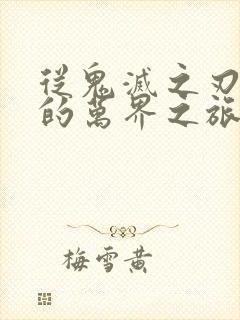 從鬼滅之刃
的萬界之旅
梅雪黄